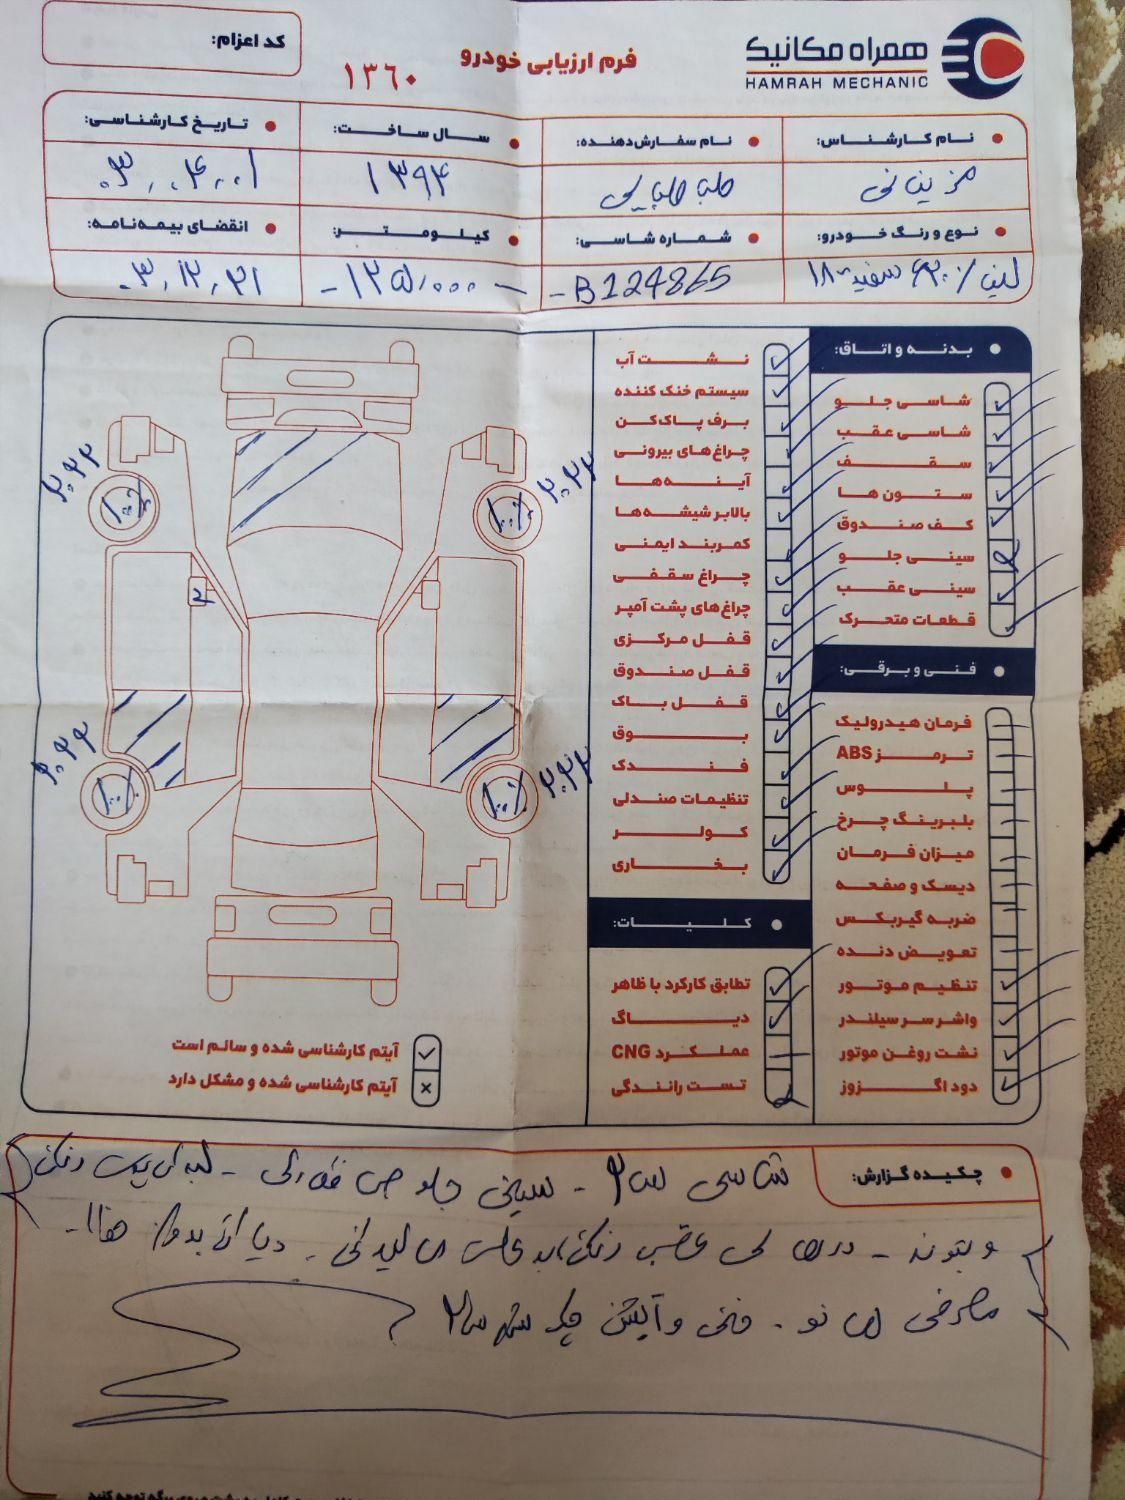 همراه مکانیک
HAMRAH MECHANIC
فرم ارزیابی خودرو
۱۳۶۰
کد اعزام:
نام کارشناس:
نام سفارش‌دهنده:
سال ساخت:
تاریخ کارشناسی:
مزینانی
طباطبایی
۱۳۹۴
۰۳,۰۴,۰۱
نوع و رنگ خودرو:
شماره شاسی:
کیلومتر:
انقضای بیمه‌نامه:
لیفان ۶۲۰ سفید ۱۸۰۰
B124865
۱۲۵,۰۰۰
۰۳,۱۲,۲۱
بدنه و اتاق:
شاسی جلو
شاسی عقب
سقف
ستون ها
کف صندوق
سینی جلو
سینی عقب
قطعات متحرک
فنی و برقی:
فرمان هیدرولیک
ترمز ABS
پلوس
بلبرینگ چرخ
میزان فرمان
دیسک و صفحه
ضربه گیربکس
تعویض دنده
تنظیم موتور
واشر سر سیلندر
نشت روغن موتور
دود اگزوز
نشت آب
سیستم خنک کننده
برف پاک‌کن
چراغ‌های بیرونی
آینه‌ها
بالابر شیشه‌ها
کمربند ایمنی
چراغ سقفی
چراغ‌های پشت آمپر
قفل مرکزی
قفل صندوق
قفل باک
بوق
فندک
تنظیمات صندلی
کولر
بخاری
کلیات:
تطابق کارکرد با ظاهر
دیاگ
عملکرد CNG
تست رانندگی
۲۰۲۲
۲۰۲۲
۲۰۲۲
۲۰۲۲
آیتم کارشناسی شده و سالم است
آیتم کارشناسی شده و مشکل دارد
چکیده گزارش:
شاسی سالم - سینی جلو
و بتونه - درهای عقب رنگ
فنی و آپشن چک شد سالم